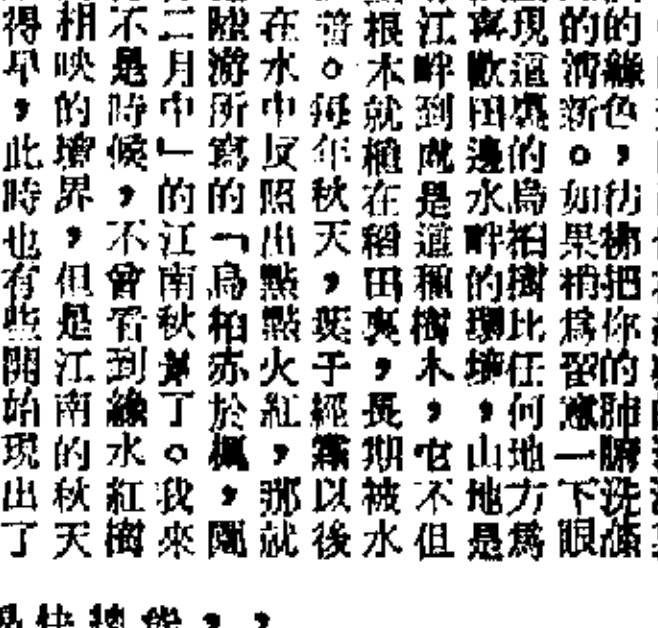 的綠色，彷彿把你的肺腑洗滌
的清新。如果稍爲留意一下眼
現這裏的烏桕樹比任何地方爲
喜歡田邊水畔的環境，山地是
江畔到處是這種樹木，它不但
根木就植在稻田裏，長期被水
着。每年秋天，葉子經霧以後
在水中反照出點點火紅，那就
陸游所寫的「烏桕赤於楓，園
二月中」的江南秋了。我來
不是時候，不曾看到綠水紅樹
相映的境界，但是江南的秋天
得早，此時也有些開始現出了